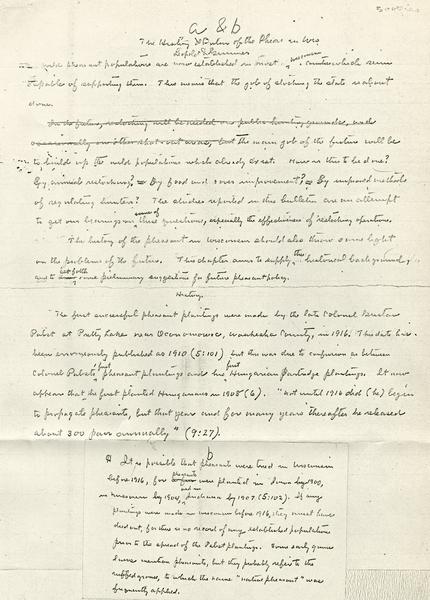 a & b
The History & Future of the Pheas. in Wis
Leopold &
wild pheasant populations are now established in most Wisconsin counties which seem
capable of supporting them. This means that the job of stocking the state is about
done.
In the future, restocking will be needed on public hunting grounds, and
occasionally on other shot-out areas, but the main job of the future will be
to build up the wild populations which already exist. How is this to be done?
By annual restocking? By food and cover improvement? By improved methods
of regulating hunters? The studies reported in this bulletin are an attempt
to get our bearings on some of these questions, especially the effectiveness of restocking operations.
The history of the pheasant in Wisconsin should also throw some light
on the problems of the future. This chapter aims to supply this historical background,
and to set forth some preliminary suggestions for future pheasant policy.
History.
The first successful pheasant plantings were made by the late Colonel Gustav
Pabst at Pretty Lake near Oconomowoc, Waukesha County, in 1916. This date has
been erroneously published as 1910 (5:101) but this was due to confusion as between
Colonel Pabst's first pheasant plantings and his first Hungarian Partridge plantings. It now
appears that he first planted Hungarians in 1908 (6). "Not until 1916 did (he) begin
to propagate pheasants, but that year and for many years thereafter he released
about 300 pair annually" (9:27).
b
It is possible that pheasants were tried in Wisconsin
before 1916, for pheasants were planted in Iowa by 1900,
in Missouri by 1904, and in Indiana by 1907 (5:102). If any
plantings were made in Wisconsin before 1916, they must have
died out, for there is no record of any established populations
prior to the spread of the Pabst plantings. Some early game
laws mention pheasants, but they probably refer to the
ruffed grouse, to which the name "native pheasant" was
frequently applied.